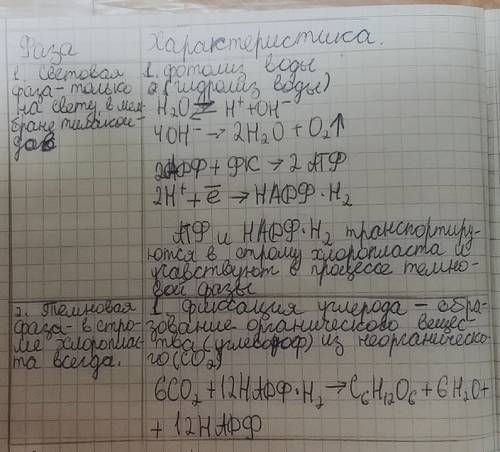 Фаза
Характеристика.
1. Световая
фаза - только
на свету, в мем-
бране тилакои-
дов
1. фотолиз воды
2 (гидролиз воды)
H₂O ⇄ H⁺ + OH⁻
4OH⁻ → 2H₂O + O₂↑
2АДФ + ФК → 2 АТФ
2H⁺ + ē → НАДФ·H₂
АТФ и НАДФ·H₂ транспортиру-
ются в строму хлоропласта и
учавствуют в процессе темно-
вой фазы
2. Темновая
фаза - в стро-
ме хлороплас-
та всегда.
1. Фиксация углерода - обра-
зование органического вещес-
тва (углеводов) из неорганическо-
го (CO₂)
6CO₂ + 12НАДФ·H₂ → C₆H₁₂O₆ + 6H₂O +
+ 12НАДФ